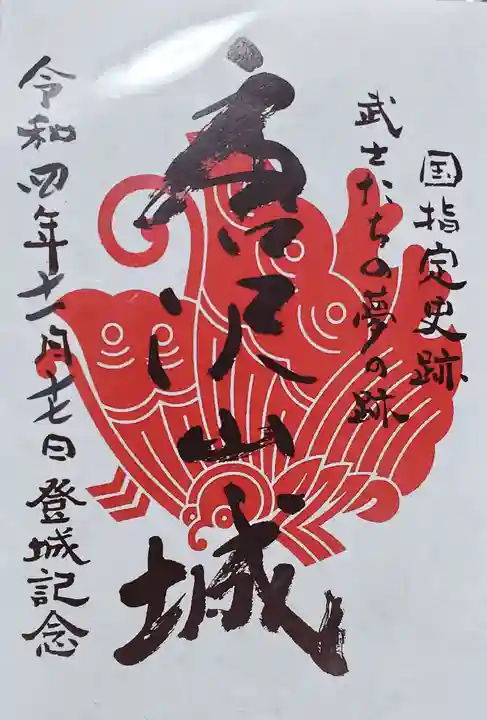 国指定史跡
武士たちの夢の跡
唐沢山城
令和四年十一月十七日登城記念